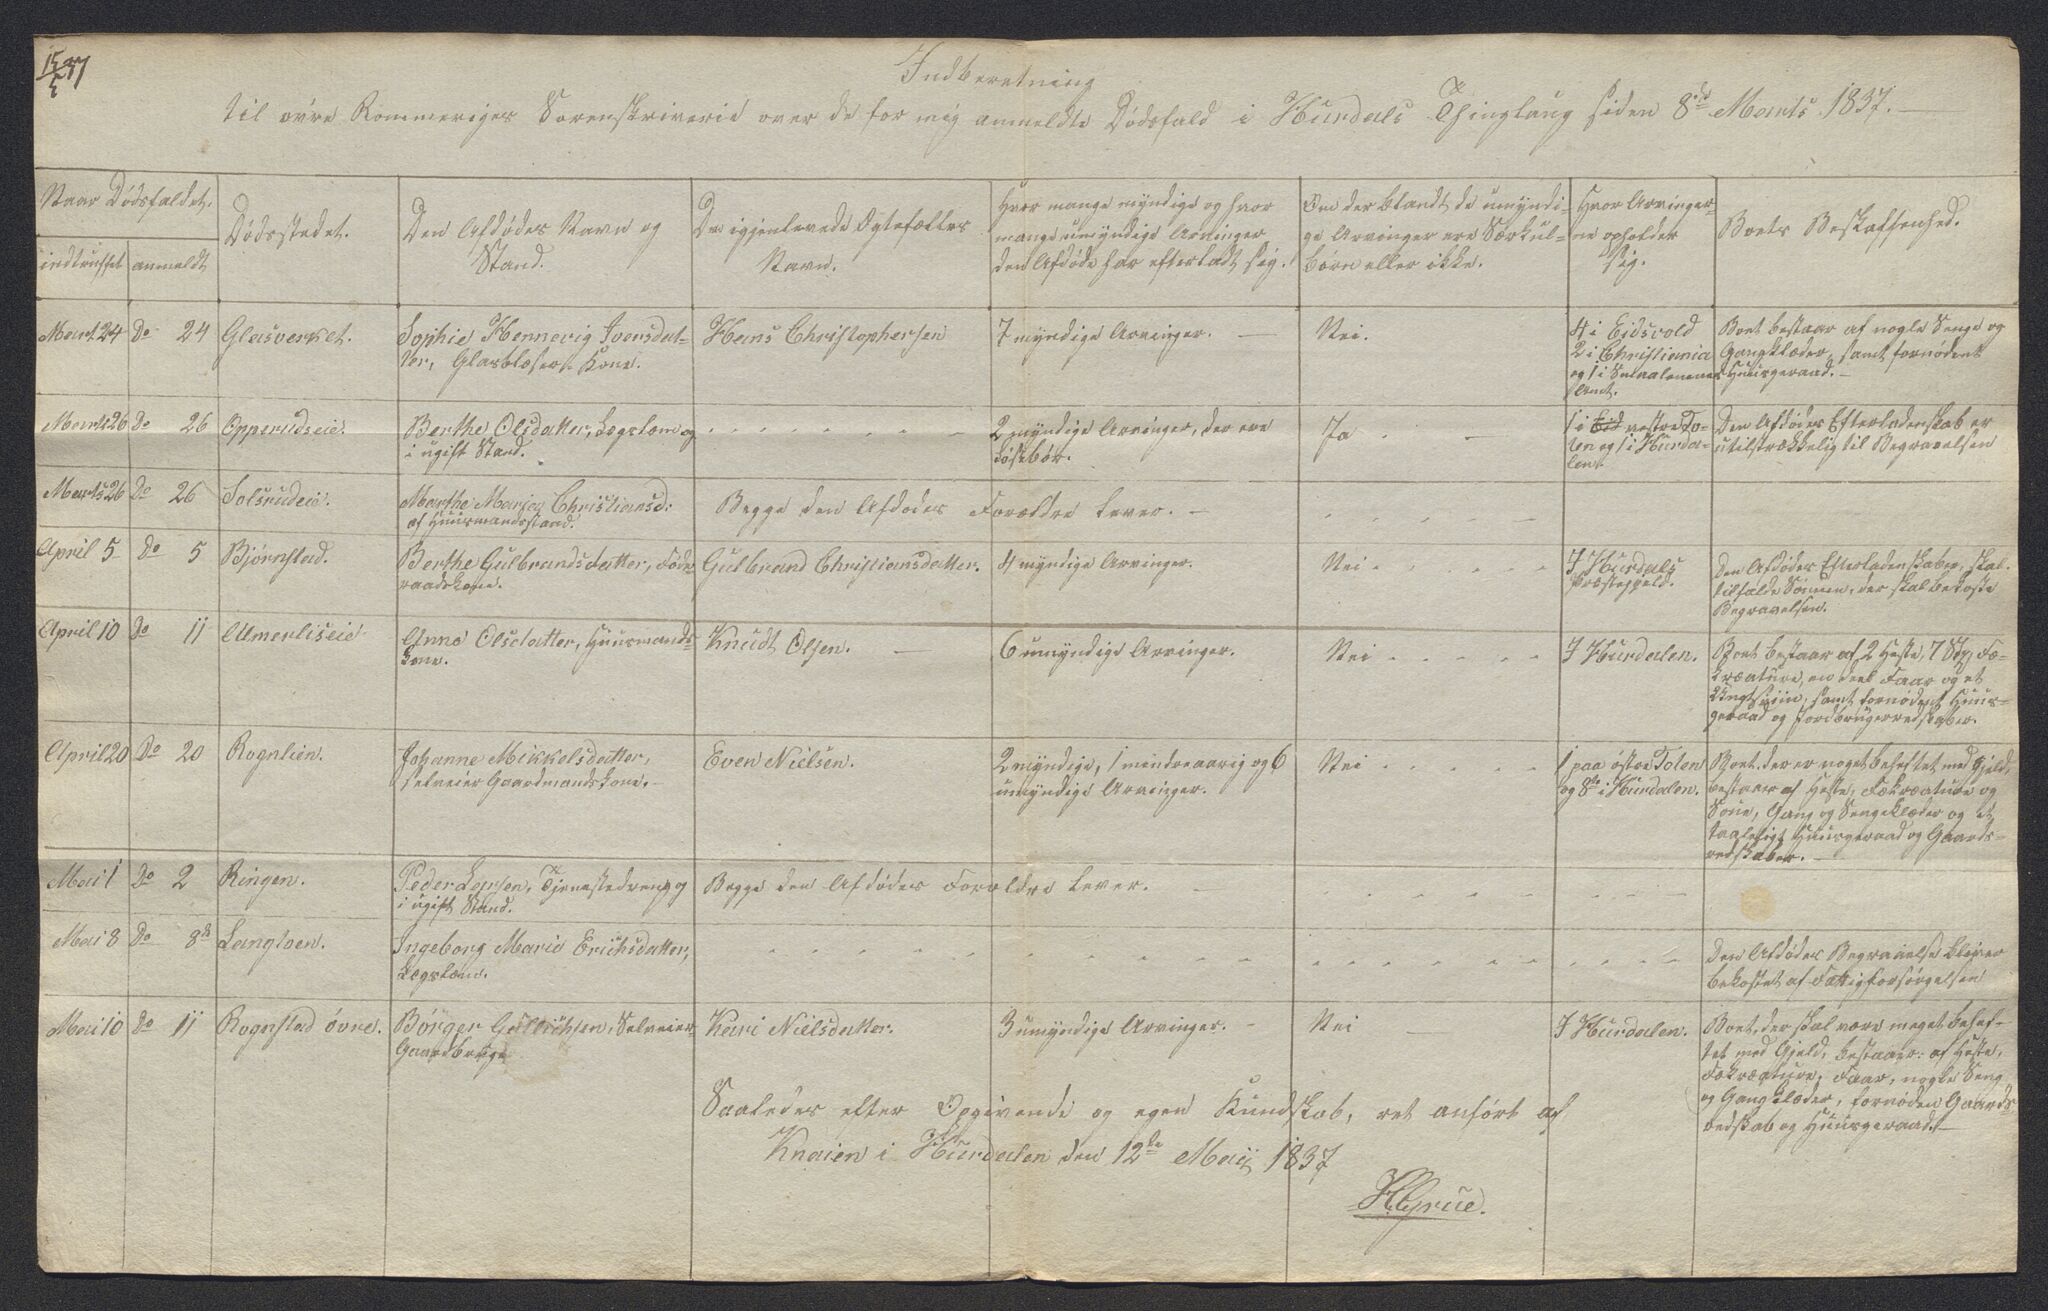 15/5 37
Indberetning
til øvre Rommeriges Sorenskriverie over de for mig anmeldte Dødsfald i Hurdals Thinglaug siden 8de Marts 1837. —
Naar Dødsfaldet.
indtruffet
anmeldt
Dødsstedet.
Den Afdødes Navn og
Stand.
Den igjenlevende Ægtefælles
Navn.
Hvor mange myndige og hvor
mange umyndige Arvinger
den Afdøde har efterladt sig.
Om der blandt de umyndi-
ge Arvinger ere Særkul-
børn eller ikke.
Hvor Arvinger-
ne opholder
sig.
Boets Beskaffenhed.
Mart 24
Do 24
Glasverket.
Sophie Hennevig Iversdat-
ter, Glasblæser Kone.
Hans Christophersen
7 myndige Arvinger. —
Nei.
4 i Eidsvold
2 i Christiania
og 1 i
Amt.
Boet bestaar af nogle Senge og
Gangklæder, samt fornødent
Huusgeraad. —
Marts 26
Do 26
Opperudseie.
Berthe Olsdatter, Lægslem og
i ugift Stand.
2 myndige Arvinger, der ere
Løsebør.
Ja
1 i Eid vestre To-
ten og 1 i Hurda-
len.
Den Afdødes Efterladenskab er
utilstrækkelig til Begravelsen
Marts 26
Do 26
Solsrudeie.
Marthe Marja Christiansd:
af Huusmandsstand.
Begge den Afdødes Forældre lever. —
April 5
Do 5
Bjørnstad.
Berthe Gulbrandsdatter, Føde-
raadskone.
Gulbrand Christiansdatter.
4 myndige Arvinger.
Nei
I Hurdals
Præstegjeld.
Den Afdødes Efterladenskaber, skal
tilfalde Sønnen, der skal bekoste
Begravelsen.
April 10
Do 11
Almerliseie
Anne Olsdatter, Huusmands-
kone.
Knudt Olsen. —
6 umyndige Arvinger.
Nei
I Hurdalen.
Boet bestaar af 2 Heste, 7 Stk Fæ-
kreature, en deel Faar og et
Ungsviin, samt fornødent Huus-
geraad og Jordbrugerredskaber.
April 20
Do 20
Rognlien.
Johanne Mikkelsdatter,
selveier Gaardmandskone. -
Even Nielsen.
2 myndige, 1 mindreaarig og 6
umyndige Arvinger.
Nei
1 paa østre Toten
og 8te i Hurdalen.
Boet der er noget beheftet med Gjeld,
bestaaer af Heste, Fækreature og
Soue, Gang og Sengeklæder og et
taaleligt Huusgeraad og Gaards-
redskaber. —
Mai 1
Do 2
Ringen.
Peder Larsen, Tjenestedreng og
i ugift Stand.
Begge den Afdødes Forældre lever. —
Mai 8
Do 8de
Langtoen.
Ingeborg Marie Erichsdatter,
Lægslem.
Den Afdødes Begravelse bliver
bekostet af Fattigforsørgelsen
Mai 10
Do 11
Rognstad øvre.
Børger Gullichsen, Selveier-
Gaardbruge
Kari Nielsdatter.
3 umyndige Arvinger. -
Nei —
I Hurdalen.
Boet, der skal være meget behef-
tet med Gjeld, bestaaer: af Heste,
Fækreature, Faar, nogle Seng
og Gangklæder, fornøden Gaards-
redskab og Huusgeraad. —
Saaledes efter Opgivende og egen Kundskab, ret anført af
Knaien i Hurdalen den 12te Maij 1837
H Grue.